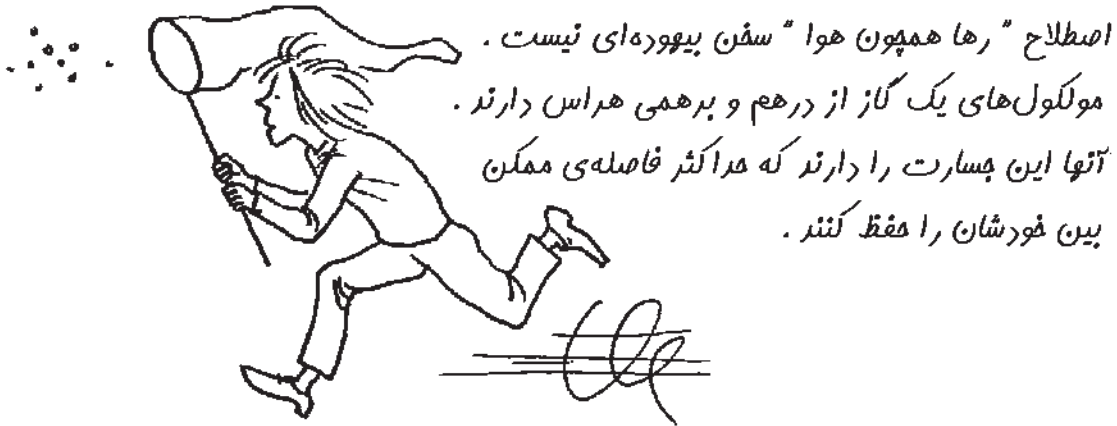 اصطلاح " رها همچون هوا " سخن بیهوده‌ای نیست .
مولکول‌های یک گاز از درهم و برهمی هراس دارند .
آنها این جسارت را دارند که حداکثر فاصله‌ی ممکن
بین خودشان را حفظ کنند .